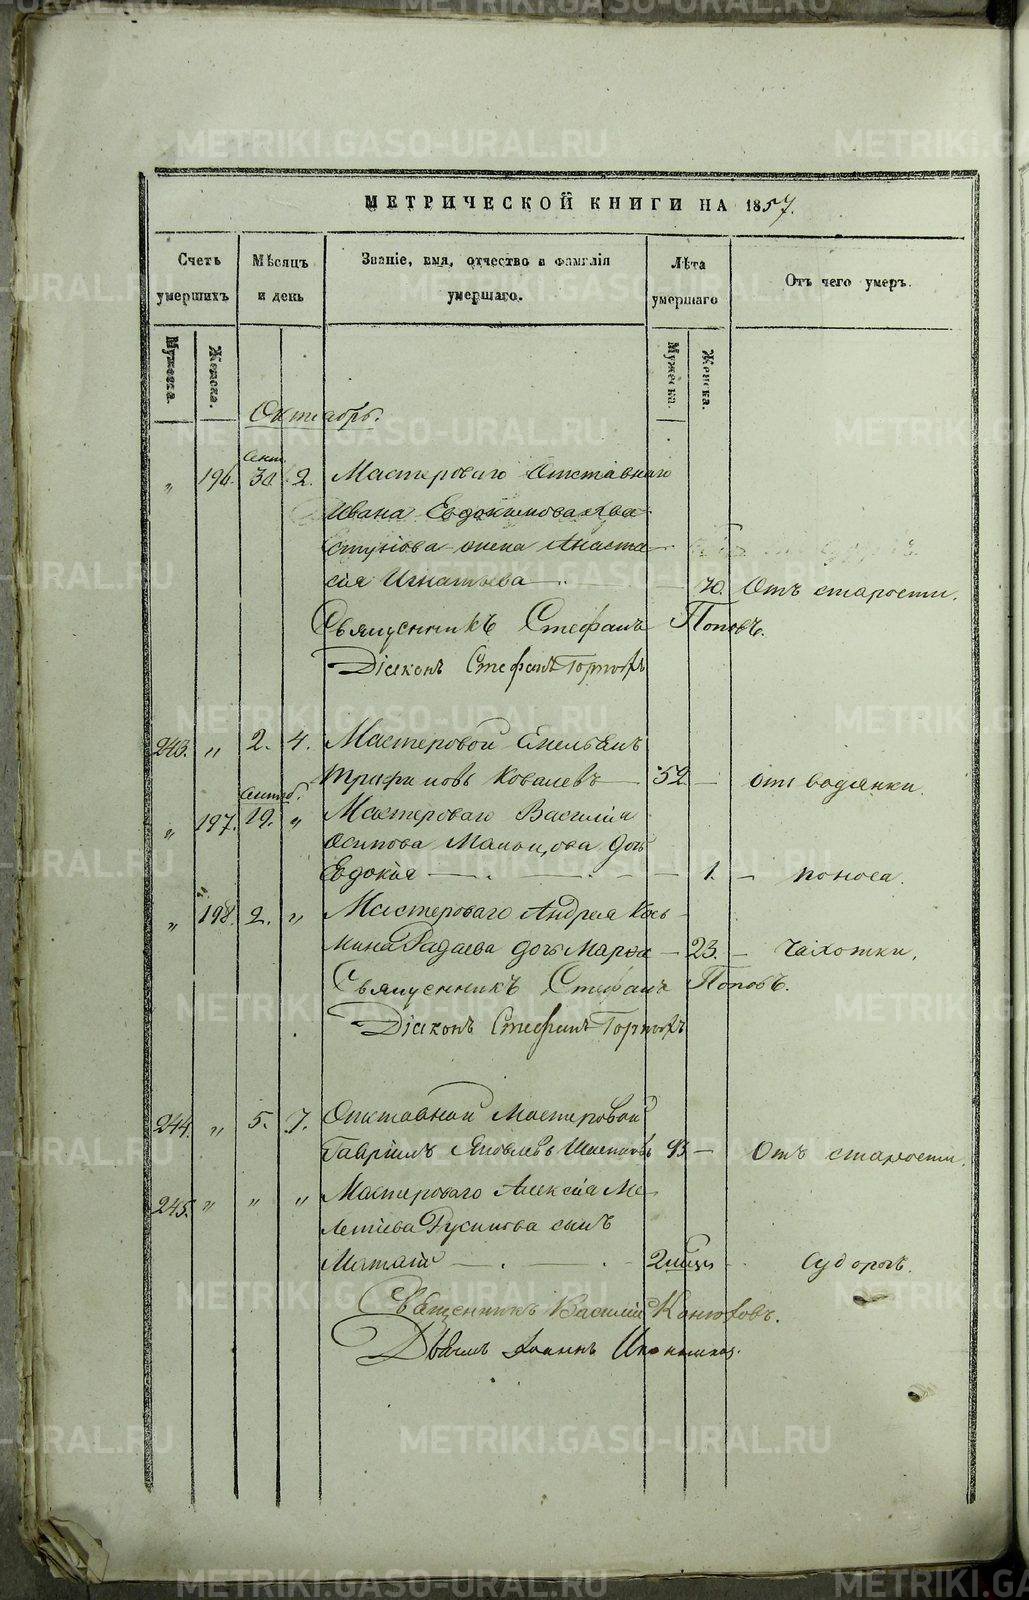 МЕТРИЧЕСКОЙ КНИГИ НА 1857.
Счетъ умершихъ
Мѣсяцъ и день
Званіе, имя, отчество и фамилія умершаго.
Лѣта умершаго
Отъ чего умеръ.
Мужеска. Женска.
Мужеска. Женска.
Октябрь.
Сент.
„ 196. 30. 2. Мастероваго Отставнаго
Ивана Евдокимова
жена Анаста-
сія Игнатьева — 70. Отъ старости.
Священникъ Стефанъ Поповъ.
Діаконъ Стефанъ
243. „ 2. 4. Мастеровой Емельянъ
Трифоновъ Ковалевъ — 52 — отъ водянки.
Сентяб.
„ 197. 19. „ Мастероваго Василія
Осипова дочь
Евдокія — 1. — поноса.
„ 198. 2. „ Мастероваго Андрея Кось-
мина Радаева дочь Марѳа — 23. — чахотки.
Священникъ Стефанъ Поповъ.
Діаконъ Стефанъ
244. „ 5. 7. Отставной Мастеровой
Гавріилъ Яковлевъ 93 — Отъ старости.
245. „ „ „ Мастероваго Алексія Ме-
летіева Русинова сынъ
— 2 мѣсц. — судорогъ.
Священникъ Василій Конюховъ.
Іоаннъ
METRIKI.GASO-URAL.RU